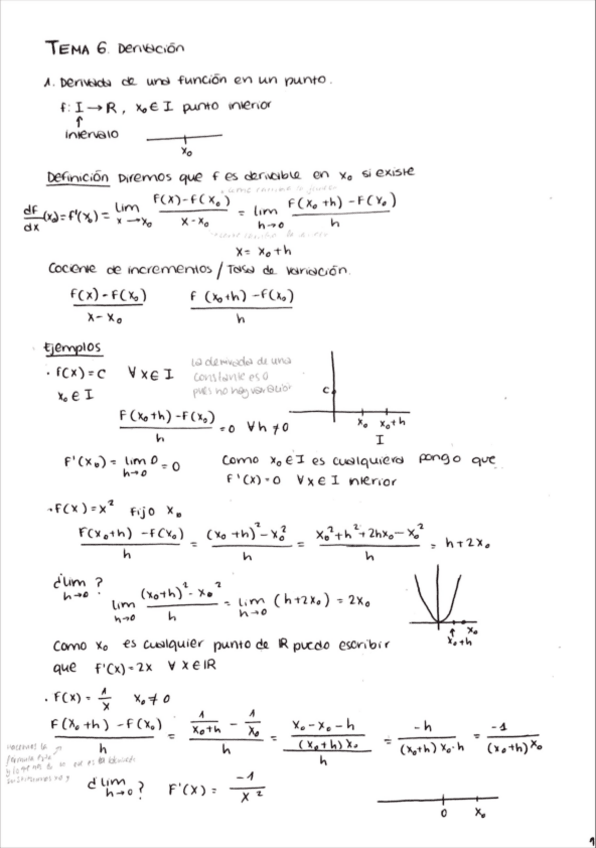 TEMA 6. Derivación
1. Derivada de una función en un punto.
f: I → R, x₀ ∈ I punto interior
↑
intervalo
x₀
Definición Diremos que f es derivable en x₀ si existe
df/dx (x₀) = f'(x₀) = lim x→x₀ (f(x) - f(x₀))/(x - x₀) = lim h→0 (f(x₀ + h) - f(x₀))/h
x = x₀ + h
Cociente de incrementos / Tasa de variación.
(f(x) - f(x₀))/(x - x₀) (f(x₀+h) - f(x₀))/h
Ejemplos
· f(x) = c ∀ x ∈ I
x₀ ∈ I
La derivada de una
constante es 0
pues no hay variación
c
x₀ x₀+h
I
(f(x₀+h) - f(x₀))/h = 0 ∀h ≠ 0
f'(x₀) = lim h→0 0 = 0 Como x₀ ∈ I es cualquiera pongo que
f'(x) = 0 ∀x ∈ I interior
· f(x) = x² fijo x₀
(f(x₀+h) - f(x₀))/h = ((x₀+h)² - x₀²)/h = (x₀² + h² + 2hx₀ - x₀²)/h = h + 2x₀
¿lim h→0?
lim h→0 ((x₀+h)² - x₀²)/h = lim h→0 (h + 2x₀) = 2x₀
x₀
x₀+h
Como x₀ es cualquier punto de ℝ puedo escribir
que f'(x) = 2x ∀ x ∈ ℝ
· f(x) = 1/x x₀ ≠ 0
(f(x₀+h) - f(x₀))/h = (1/(x₀+h) - 1/x₀)/h = ((x₀ - x₀ - h)/((x₀+h) x₀))/h = -h/((x₀+h) x₀·h) = -1/((x₀+h) x₀)
¿lim h→0? f'(x) = -1/x²
0 x₀
1